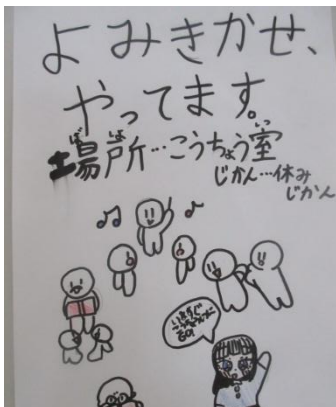 よみきかせ、
やってます。
場所…こうちょう室
じかん…休み
じかん